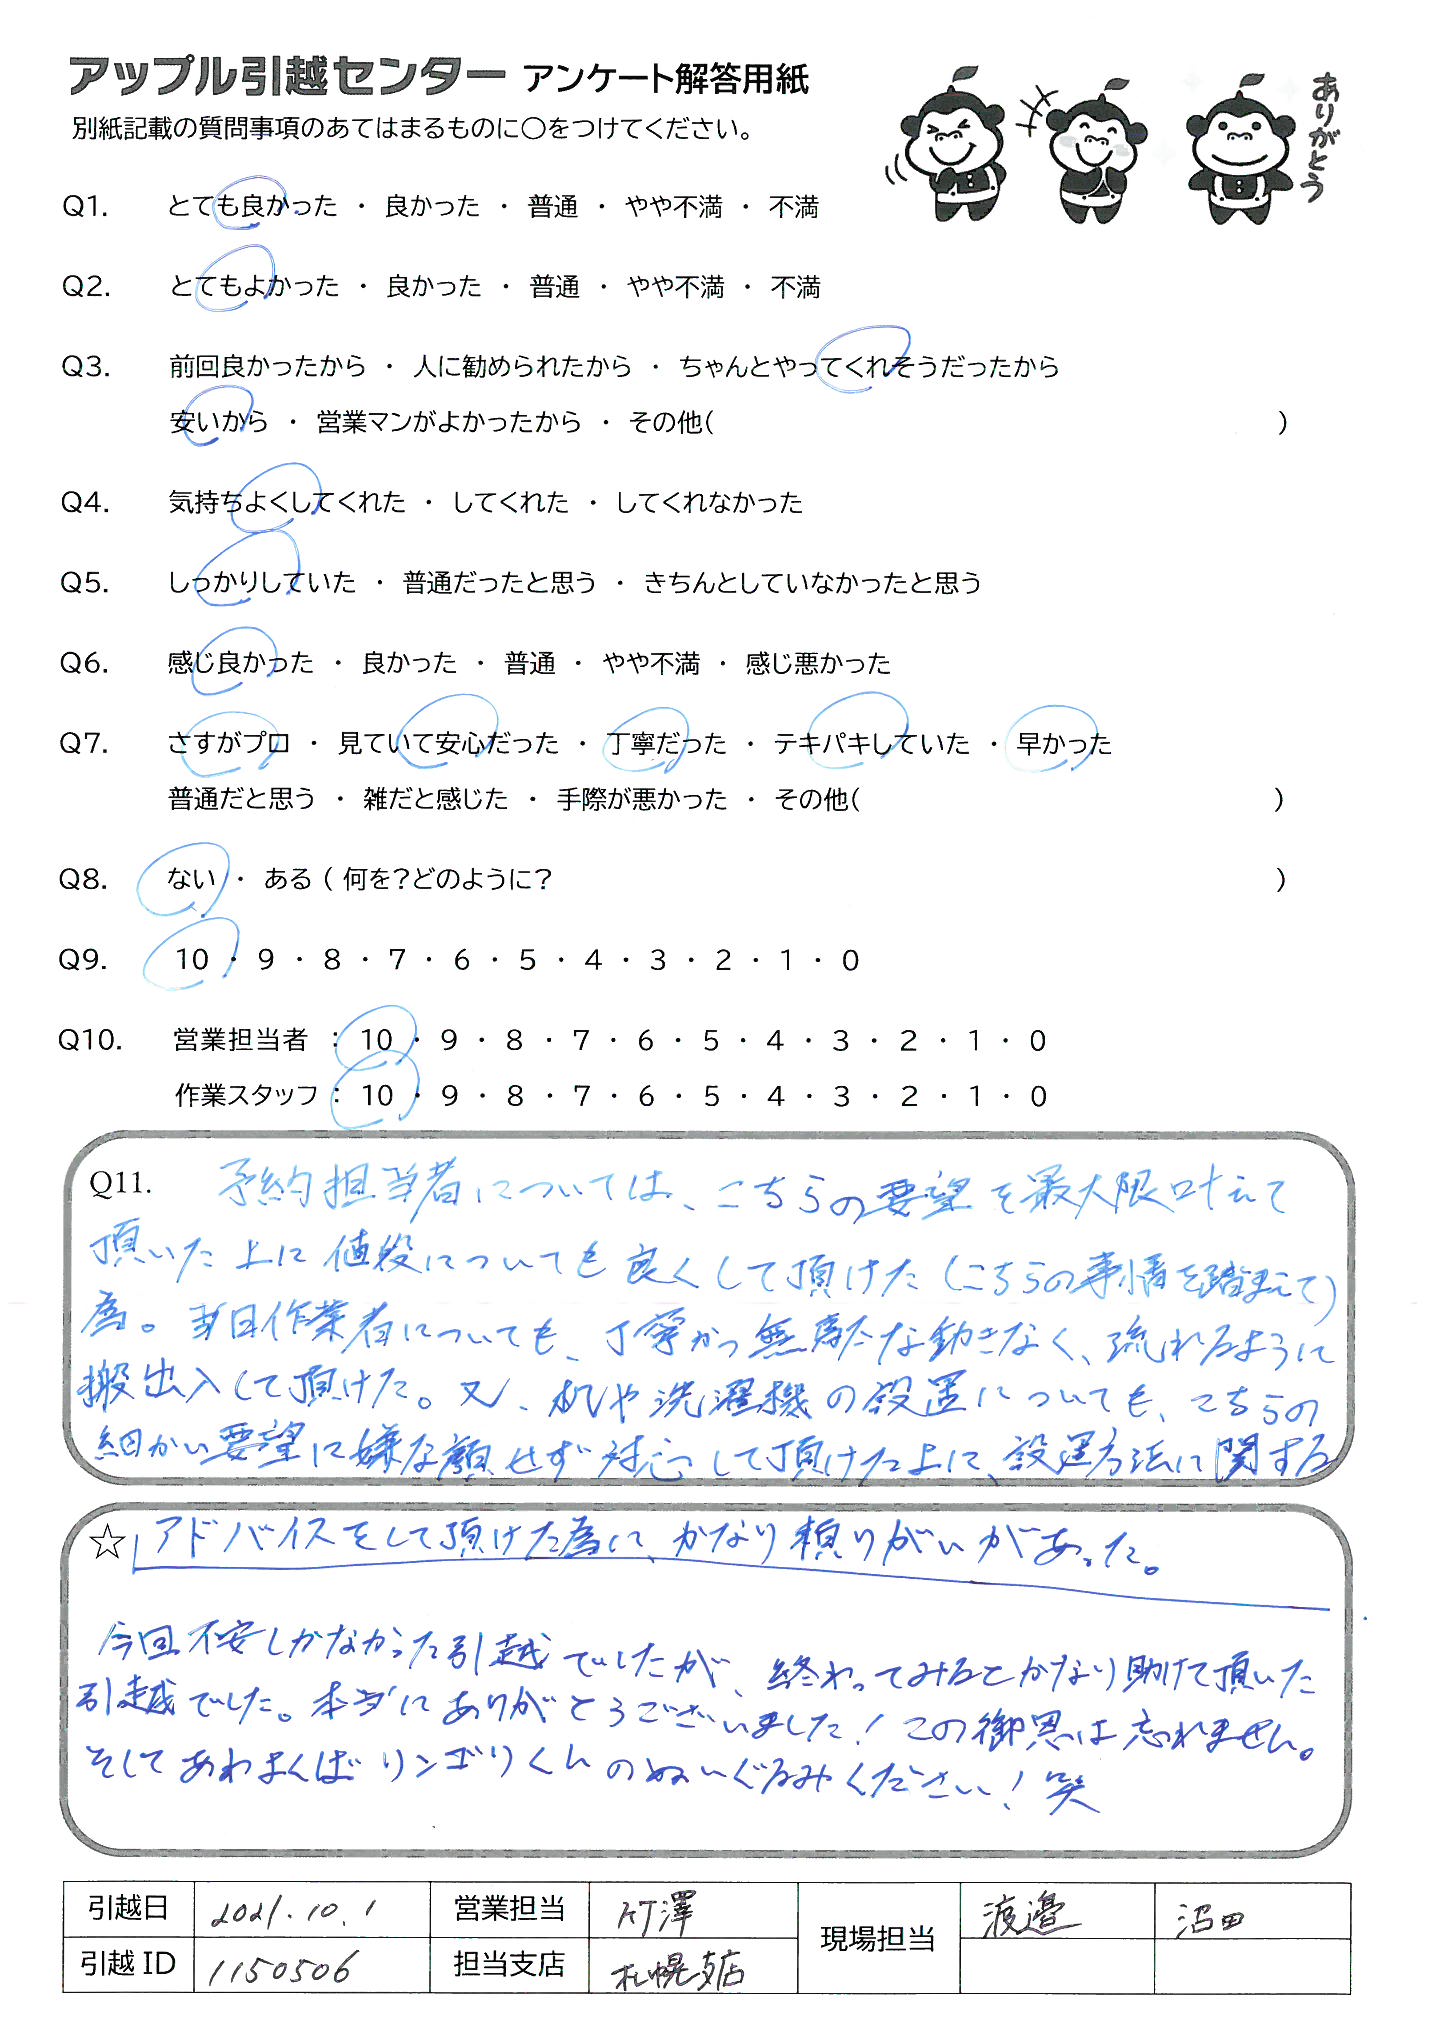 アップル引越センター アンケート解答用紙
別紙記載の質問事項のあてはまるものに○をつけてください。
ありがとう
Q1. とても良かった ・ 良かった ・ 普通 ・ やや不満 ・ 不満
Q2. とてもよかった ・ 良かった ・ 普通 ・ やや不満 ・ 不満
Q3. 前回良かったから ・ 人に勧められたから ・ ちゃんとやってくれそうだったから
安いから ・ 営業マンがよかったから ・ その他( )
Q4. 気持ちよくしてくれた ・ してくれた ・ してくれなかった
Q5. しっかりしていた ・ 普通だったと思う ・ きちんとしていなかったと思う
Q6. 感じ良かった ・ 良かった ・ 普通 ・ やや不満 ・ 感じ悪かった
Q7. さすがプロ ・ 見ていて安心だった ・ 丁寧だった ・ テキパキしていた ・ 早かった
普通だと思う ・ 雑だと感じた ・ 手際が悪かった ・ その他( )
Q8. ない ・ ある ( 何を?どのように? )
Q9. 10 ・ 9 ・ 8 ・ 7 ・ 6 ・ 5 ・ 4 ・ 3 ・ 2 ・ 1 ・ 0
Q10. 営業担当者 : 10 ・ 9 ・ 8 ・ 7 ・ 6 ・ 5 ・ 4 ・ 3 ・ 2 ・ 1 ・ 0
作業スタッフ : 10 ・ 9 ・ 8 ・ 7 ・ 6 ・ 5 ・ 4 ・ 3 ・ 2 ・ 1 ・ 0
Q11. 予約担当者については、こちらの要望を最大限叶えて
頂いた上に値段についても良くして頂けた(こちらの事情を踏まえて)
為。当日作業者についても、丁寧かつ無駄な動きなく、流れるように
搬出入して頂けた。又、机や洗濯機の設置についても、こちらの
細かい要望に嫌な顔せず対応して頂けた上に、設置方法に関する
☆ アドバイスをして頂けた為に、かなり頼りがいがあった。
今回不安しかなかった引越でしたが、終わってみるとかなり助けて頂いた
引越でした。本当にありがとうございました!この御恩は忘れません。
そしてあわよくばリンゴリくんのぬいぐるみください!笑
引越日 2021.10.1 営業担当 竹澤 現場担当 渡邉 沼田
引越 ID 1150506 担当支店 札幌支店